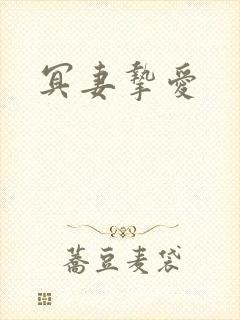 冥妻挚爱
蕎豆麦袋